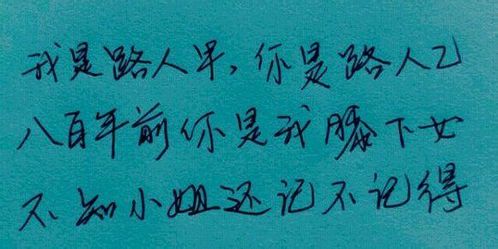 我是路人早，你是路人乙
八百年前你是我膝下女
不知小姐还记不记得